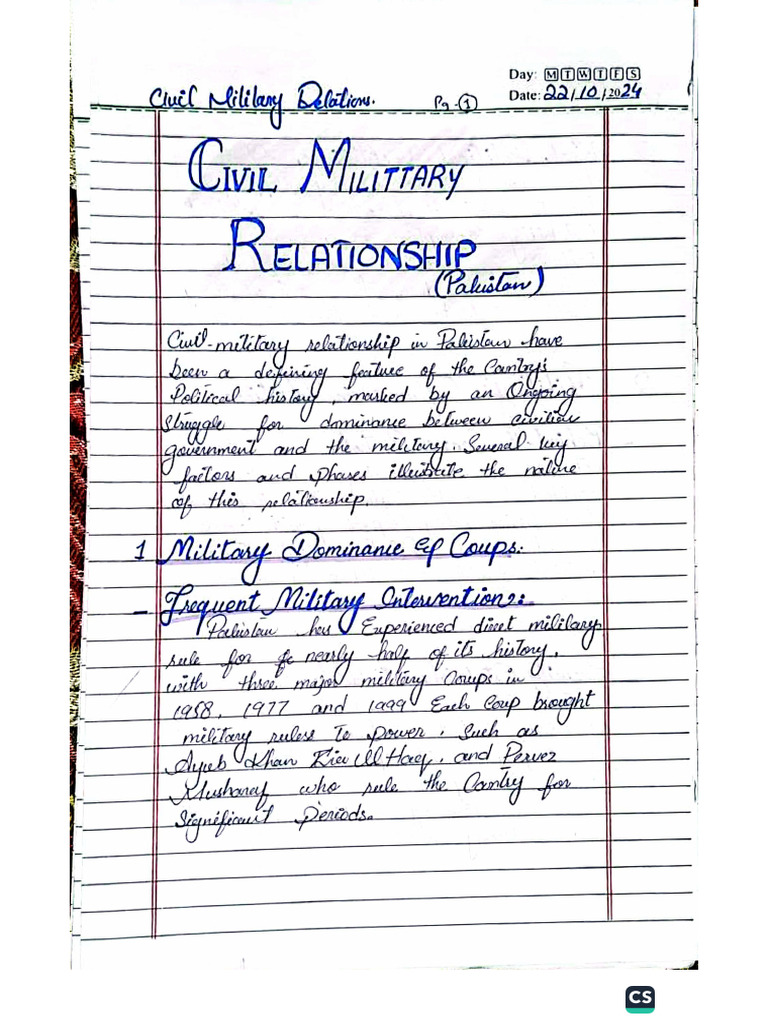 Day: M T W T F S
Civil Military Relations. Pg-(1) Date: 22/10/2024
CIVIL MILITTARY
RELATIONSHIP
(Pakistan)
Civil-military relationship in Pakistan have
been a defining feature of the Cantry's
Political history, marked by an Ongoing
Struggle for dominance between civilian
government and the military. Several key
factors and phases illustrate the nature
of this relationship.
1 Military Dominance & Coups:
- Frequent Military Interventions:
Pakistan has Experienced direct military
rule for nearly half of its history,
with three major military Coups in
1958, 1977 and 1999. Each Coup brought
military rulers to power, Such as
Ayub Khan Ziau Ul Haq, and Pervez
Musharaf who rule the Cantry for
Significant Periods.
CS